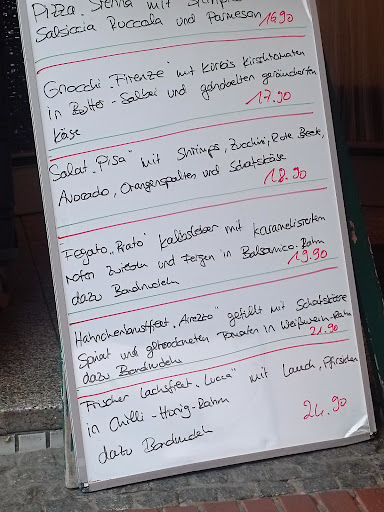 Pizza "Sienna" mit
Salsiccia Ruccola und Parmesan 16.90
Gnocchi "Firenze" mit Kürbis Kirschtomaten
in Butter-Salbei und gehobelten geräucherten
Käse 17.90
Salat "Pisa" mit Shrimps, Zucchini, Rote Beete,
Avocado, Orangenspalten und Schafskäse
18.90
Fegato "Prato" Kalbsleber mit karamelisierten
roten Zwiebeln und Feigen in Balsamico-Rahm
dazu Bandnudeln 19.90
Hähnchenbrustfilet "Arezzo" gefüllt mit Schafskäse
Spinat und getrockneten Tomaten in Weißwein-Rahm
dazu Bandnudeln 21.90
Frischer Lachsfilet "Lucca" mit Lauch, Pfirsichen
in Chilli-Honig-Rahm
dazu Bandnudeln 24.90